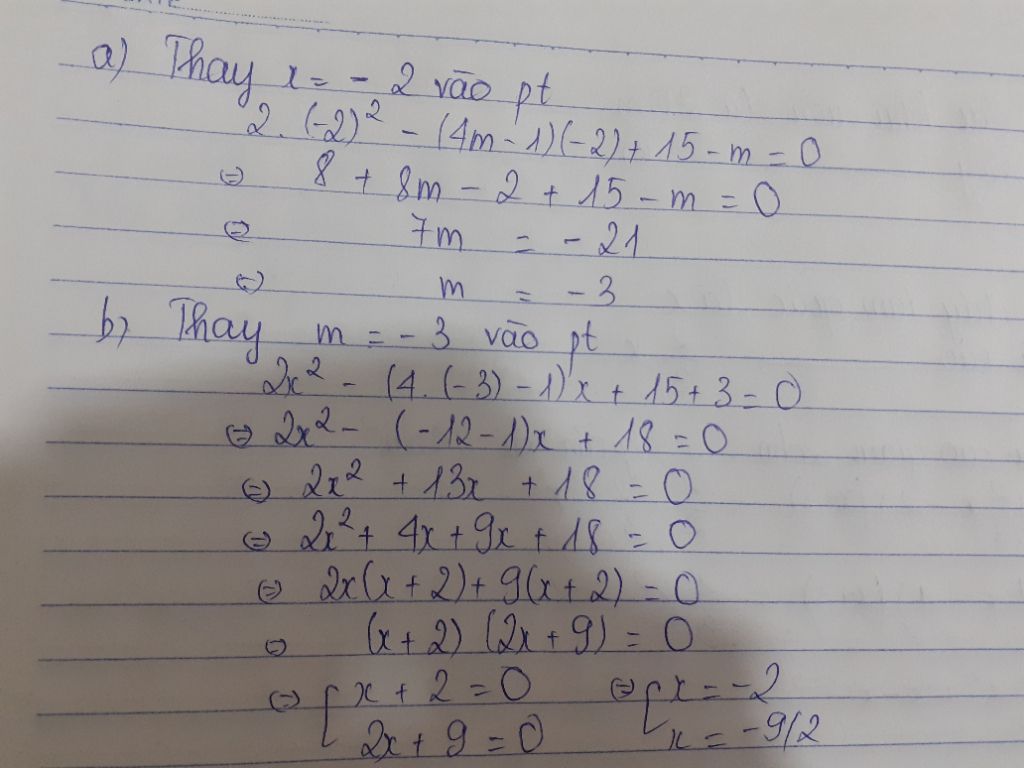 a) Thay x = - 2 vào pt
2 . (-2)² - (4m - 1)(-2) + 15 - m = 0
⇔ 8 + 8m - 2 + 15 - m = 0
⇔ 7m = - 21
⇔ m = - 3
b) Thay m = - 3 vào pt
2x² - (4. (-3) - 1)x + 15 + 3 = 0
⇔ 2x² - (-12 - 1)x + 18 = 0
⇔ 2x² + 13x + 18 = 0
⇔ 2x² + 4x + 9x + 18 = 0
⇔ 2x(x + 2) + 9(x + 2) = 0
⇔ (x + 2) (2x + 9) = 0
⇔ [ x + 2 = 0 ⇔ [ x = -2
2x + 9 = 0 x = -9/2